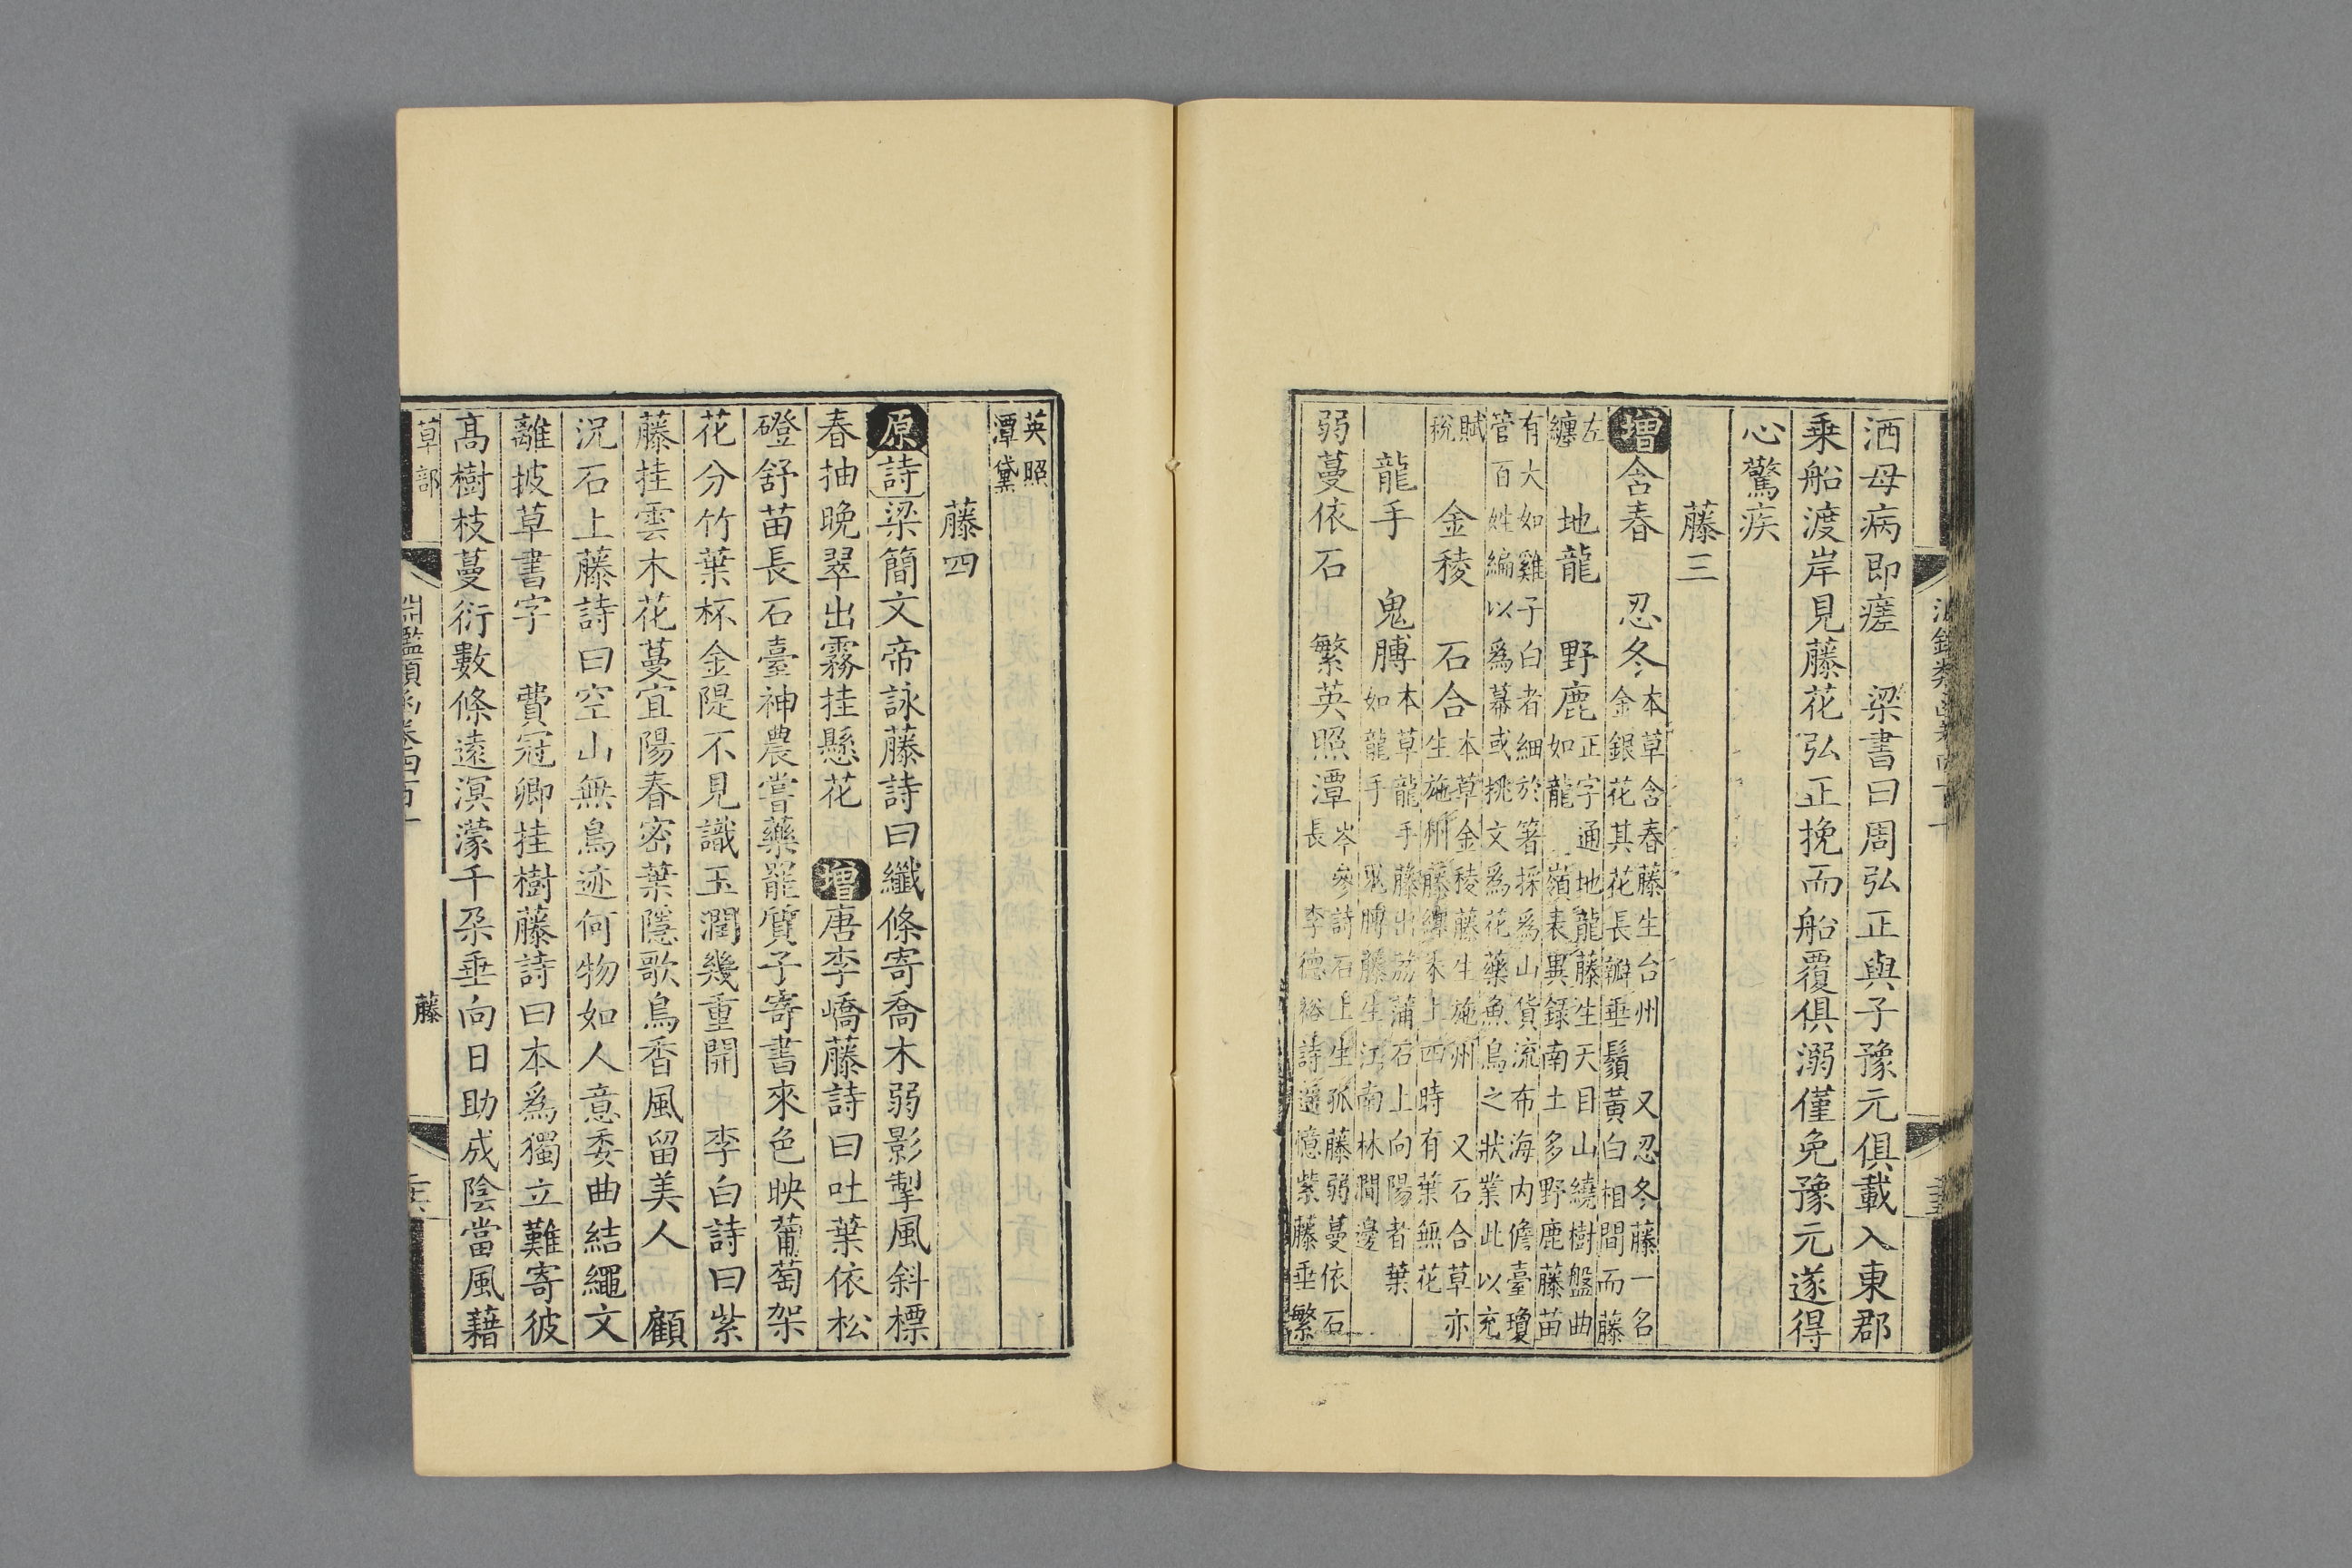 洒母病即瘥　梁書曰周弘正與子豫元俱載入東郡
乗船渡岸見藤花弘正挽而船覆俱溺僅免豫元遂得
心驚疾
藤三
增含春　忍冬
本草含春藤生台州　又忍冬藤一名
金銀花其花長瓣垂鬚黃白相間而藤
左
纏
地龍　野鹿
正字通地龍藤生天目山繞樹盤曲
如龍　嶺表異録南土多野鹿藤苗
有大如雞子白者細於箸採爲山貨流布海内儋臺瓊
管百姓編以爲幕或挑文爲花藥魚鳥之狀業此以充
賦
稅
金稜　石合
本草金稜藤生施州　又石合草亦
生施州藤纏木上四時有葉無花
龍手　鬼膊
本草龍手藤出荔蒲石上向陽者葉
如龍手　鬼膊藤生江南林澗邊
弱蔓依石　繁英照潭
岑參詩石上生孤藤弱蔓依石
長　李德裕詩遥憶紫藤垂繁
英照
潭黛
藤四
原詩梁簡文帝詠藤詩曰纖條寄喬木弱影掣風斜標
春抽晚翠出霧挂懸花　增唐李嶠藤詩曰吐葉依松
磴舒苗長石臺神農嘗藥罷質子寄書來色映葡萄架
花分竹葉杯金隄不見識玉潤幾重開　李白詩曰紫
藤挂雲木花蔓宜陽春密葉隱歌鳥香風留美人　顧
況石上藤詩曰空山無鳥迹何物如人意委曲結繩文
離披草書字　費冠卿挂樹藤詩曰本爲獨立難寄彼
高樹枝蔓衍數條遠溟濛千朶垂向日助成陰當風藉
草部
淵鑑類函卷四百十
藤